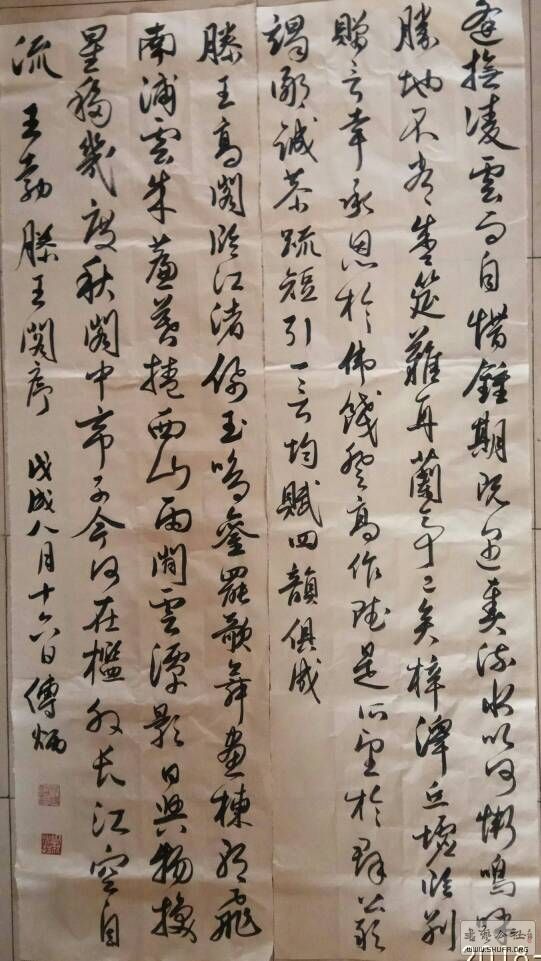 逢撫凌雲而自惜鍾期既遇奏流水以何慚嗚呼
勝地不常盛筵難再蘭亭已矣梓澤丘墟臨別
贈言幸承恩於偉餞登高作賦是所望於群公敢
竭鄙誠恭疏短引一言均賦四韻俱成
滕王高閣臨江渚佩玉鳴鑾罷歌舞畫棟朝飛
南浦雲朱簾暮捲西山雨閒雲潭影日與物換
星移幾度秋閣中帝子今何在檻外長江空自
流 王勃 滕王閣序 戊戌八月十六日傅炳
WWW.SHUFA.ORG